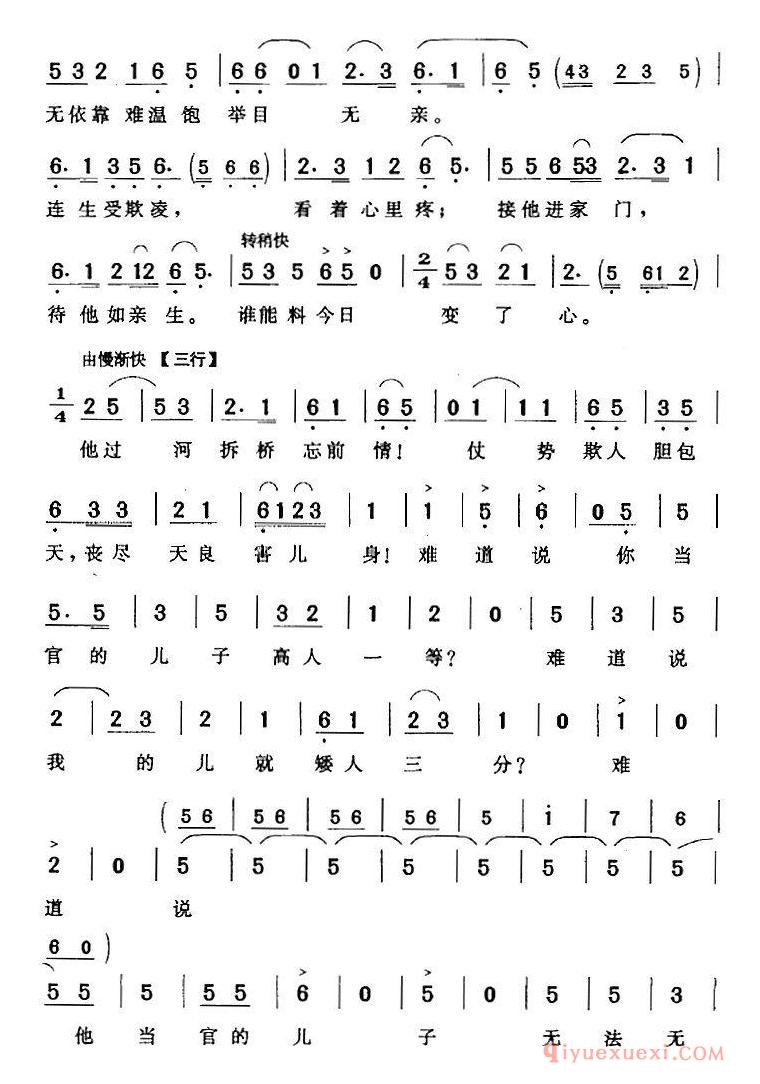 5 3 2 1 6 5 | 6 6 0 1 2· 3 6· 1 | 6 5 (43 2 3 5)
无依靠 难温 饱 举目 无 亲。
6· 1 3 5 6· (5 6 6) | 2· 3 1 2 6 5· | 5 5 6 53 2· 3 1 |
连 生 受欺凌， 看 着 心 里 疼； 接 他 进 家 门，
转稍快
6· 1 2 12 6 5· | 5 3 5 6 5 0 | 2/4 5 3 2 1 | 2· (5 61 2) |
待 他 如亲 生。 谁能 料 今日 变 了 心。
由慢渐快 【三行】
1/4 2 5 | 5 3 | 2· 1 | 6 1 | 6 5 | 0 1 | 1 1 | 6 5 | 3 5 |
他过 河 拆桥 忘前 情！ 仗 势 欺人 胆包
6 3 3 | 2 1 | 6123 | 1 | 1 | 5 | 6 | 0 5 | 5
天，丧尽 天良 害儿 身！ 难 道 说 你 当
5· 5 | 3 | 5 | 3 2 | 1 | 2 | 0 | 5 | 3 | 5
官的 儿 子 高人 一 等？ 难 道 说
2 | 2 3 | 2 | 1 | 6 1 | 2 3 | 1 | 0 | 1 | 0
我 的 儿 就 矮人 三 分？ 难
(5 6 | 5 6 | 5 6 | 5 6 | 5 | i | 7 | 6
2 | 0 | 5 | 5 | 5 | 5 | 5 | 5 | 5 | 5
道 说
6 0 )
5 5 | 5 | 5 5 | 6 | 0 | 5 | 0 | 5 | 5 | 3
他 当 官的 儿 子 无 法 无
qiyuexuexi.com